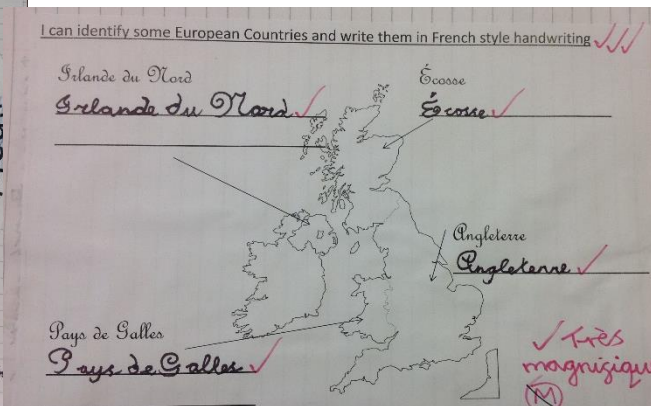 I can identify some European Countries and write them in French style handwriting
Irlande du Nord
Irlande du Nord
Écosse
Écosse
Angleterre
Angleterre
Pays de Galles
Pays de Galles
Très
magnifiqu
M